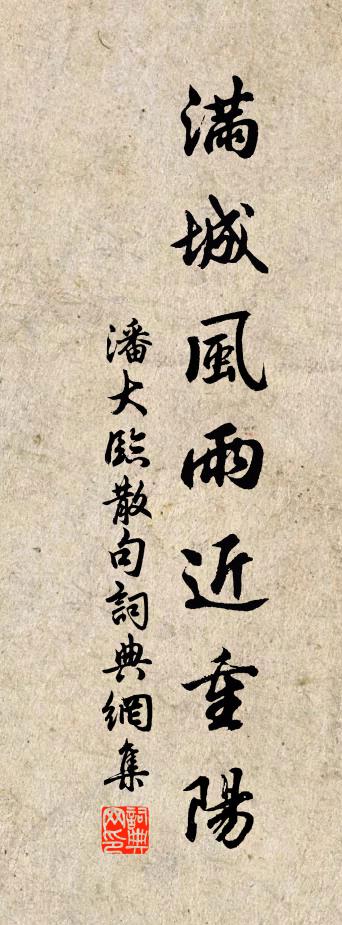 滿城風雨近重陽
潘大臨散句詞典網集
詞典网印